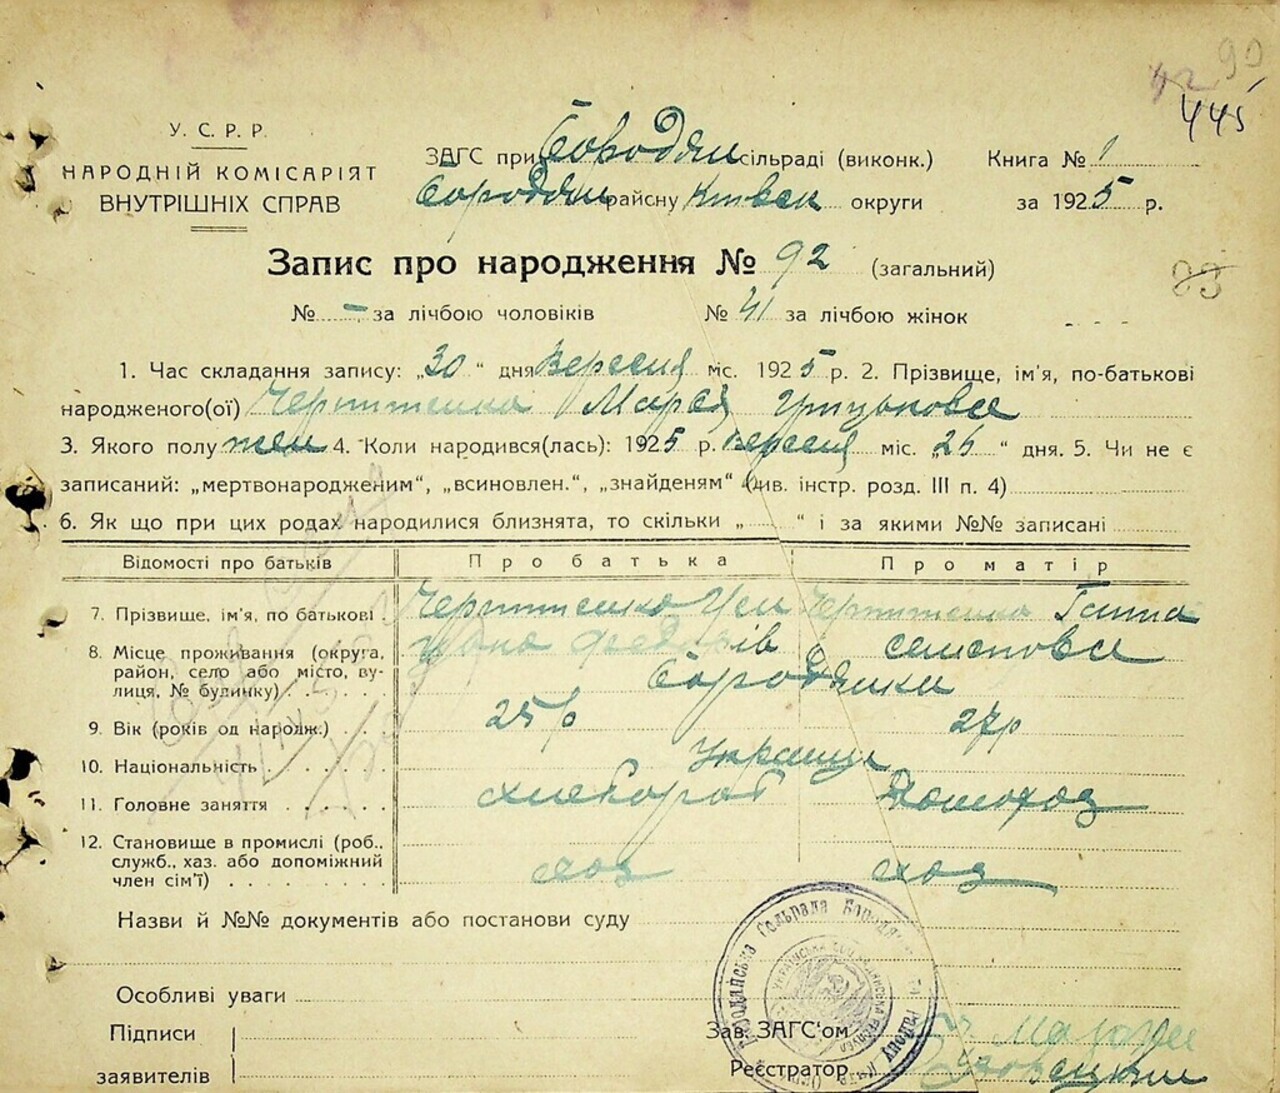 90
42
445
У. С. Р. Р.
НАРОДНІЙ КОМІСАРІЯТ
ВНУТРІШНІХ СПРАВ
ЗАГС при Бородян сільраді (виконк.) Книга № 1
Бородян райсну Київськ округи за 1925 р.
Запис про народження № 92 (загальний)
93
№ – за лічбою чоловіків № 41 за лічбою жінок
1. Час складання запису: „30“ дня Вересня міс. 1925 р. 2. Прізвище, ім'я, по-батькові
народженого(ої) Марія
3. Якого полу жен 4. Коли народився(лась): 1925 р. вересня міс. „26“ дня. 5. Чи не є
записаний: „мертвонародженим“, „всиновлен.“, „знайденям“ (див. інстр. розд. III п. 4)
6. Як що при цих родах народилися близнята, то скільки „ “ і за якими №№ записані
Відомості про батьків Про батька Про матір
7. Прізвище, ім'я, по батькові Ганна
8. Місце проживання (округа, Федорів Семеновна
район, село або місто, ву-
лиця, № будинку) Бородянка
9. Вік (років од народж.) 25 р 27 р
10. Національність Украінці
11. Головне заняття хлебороб Домохоз
12. Становище в промислі (роб.,
служб., хаз. або допоміжний
член сім'ї) хоз хоз
Назви й №№ документів або постанови суду
Особливі уваги
Підписи
заявителів
Зав. ЗАГС'ом
Реєстратор